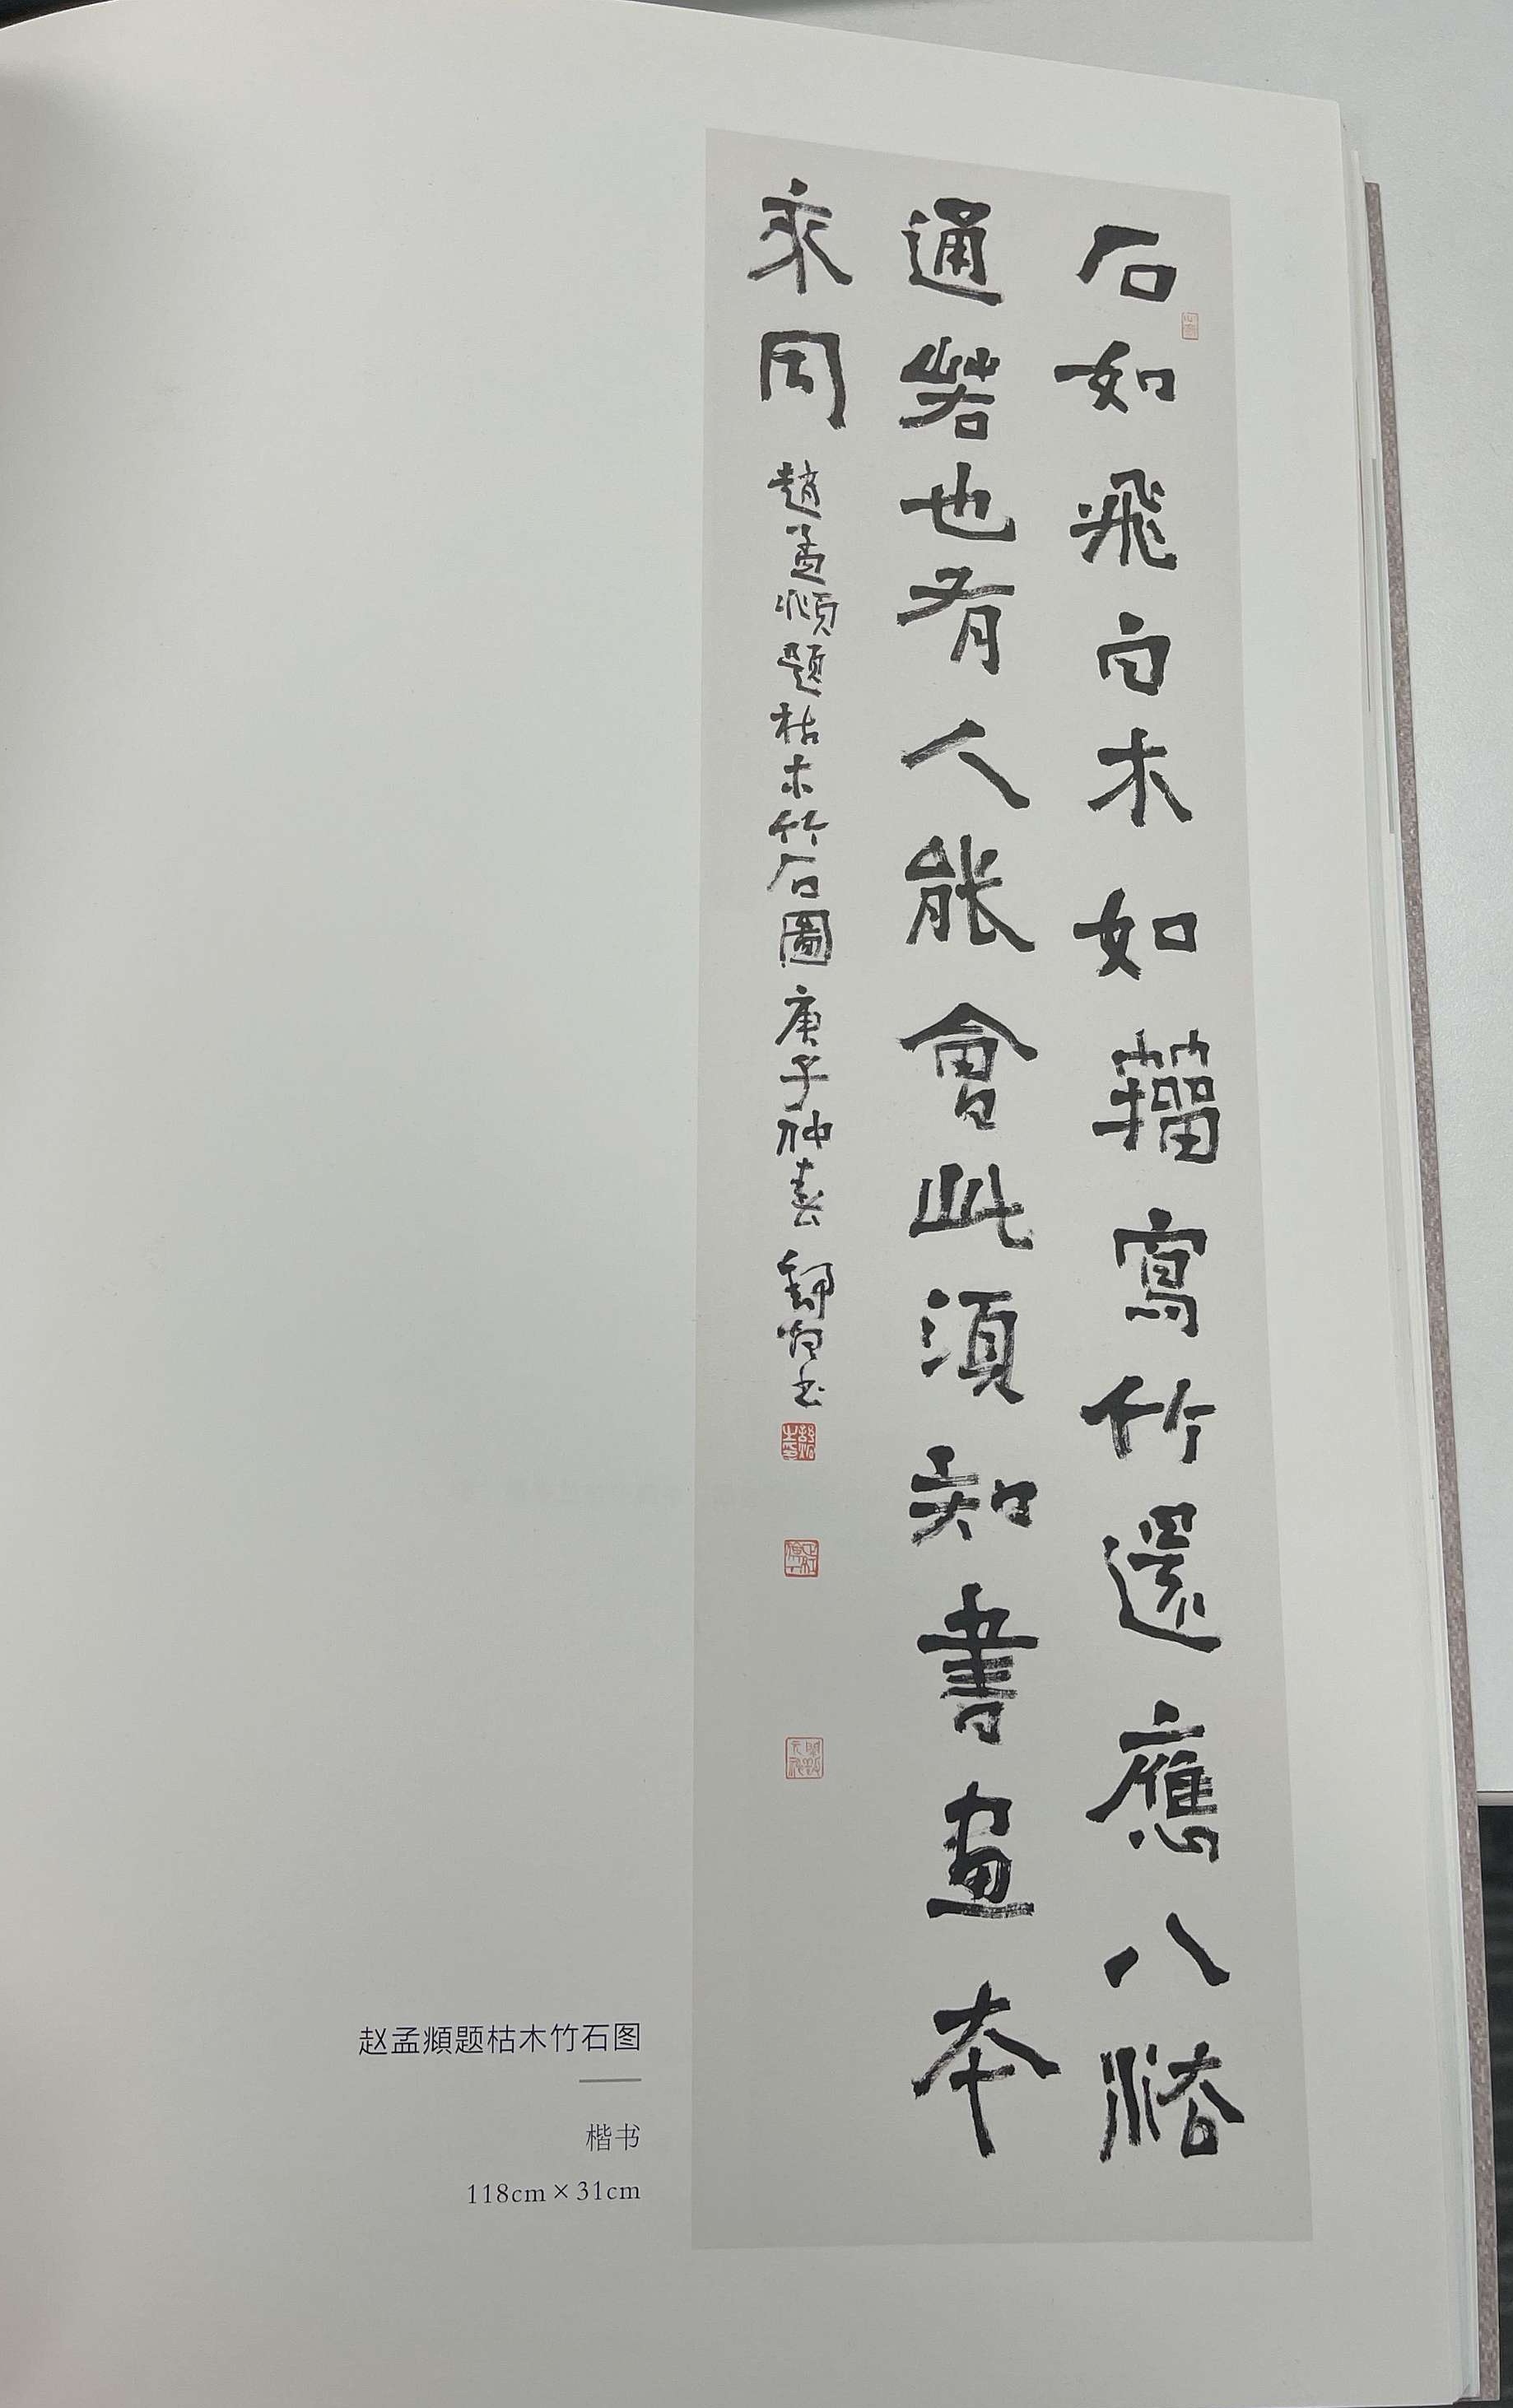 石如飛白木如籀寫竹還應八法
通若也有人能會此須知書畫本
来同
趙孟頫題枯木竹石圖庚子仲春
赵孟頫题枯木竹石图
楷书
118cm×31cm